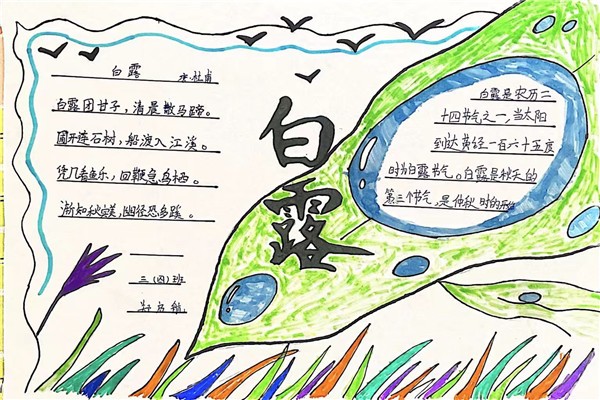 白露 杜甫
白露团甘子，清晨散马蹄。
圃开连石树，船渡入江溪。
凭几看鱼乐，回鞭急鸟栖。
渐知秋实美，幽径恐多蹊。
三（四）班
白露
白露是农历二
十四节气之一，当太阳
到达黄经一百六十五度
时为白露节气。白露是秋天的
第三个节气，是仲秋时的